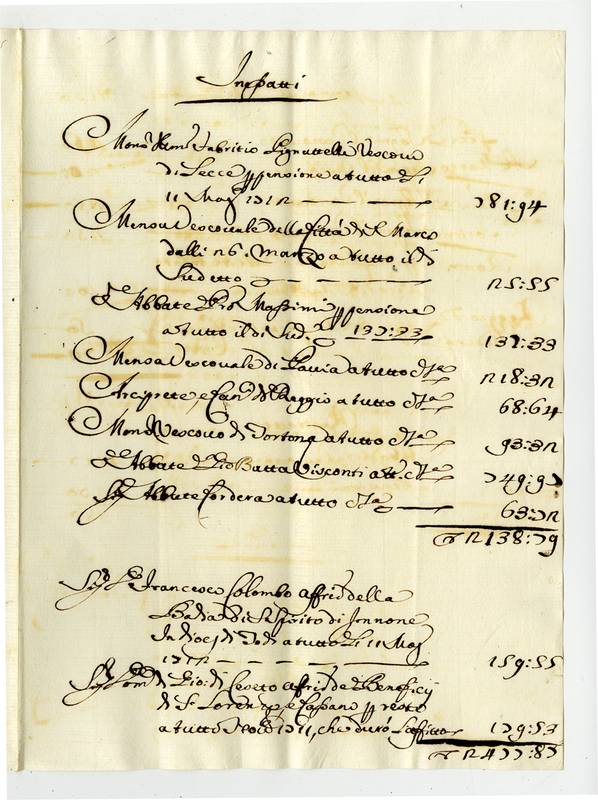 Monsr Rmo Fabritio Pignattelli Vescovo
di Lecce pensione a tutto li
11 Mag 1712 781:94
Mensa Vescovale della Città di S. Marco
dalli 26. marzo a tutto il dì
Sudetto 25:55
Sr Abbate Gio Massimi pensione
a tutto il di Sud.o 137:33 137:33
Mensa Vescovale di Pavia a tutto da 218:32
Arciprete, e Can. di a tutto da 68:64
Monsr Vescovo di Tortona a tutto da 93:32
Sr Abbate Gio Batta Visconti att. da 749:97
Sigr Abbate Cordera a tutto da 63:72
2138:79
Sigr Francesco Colombo affito della
Badia di S. Spirito di
In di a tutto li 11 Mag
1712 159:55
Sigr Gio: di affito de Beneficij
di S. Lorenzo, e Cassano resto
a tutto 1711, che durò l'affitto 179:53
2477:87